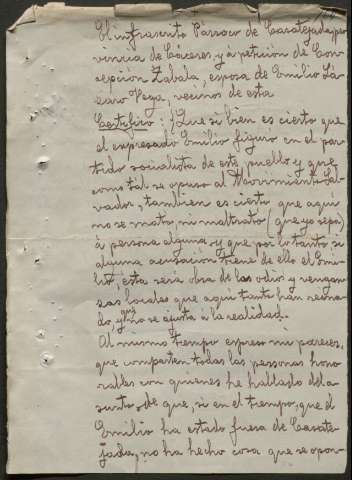 El infrascrito Párroco de Casatejada, pro
vincia de Cáceres, y á petición de Con
cepción Zabala, esposa de Emilio Lá
zaro Vega, vecinos de esta
Certifico: Que si bien es cierto que
el expresado Emilio figuró en el par
tido socialista de este pueblo y que
como tal se opuso al Movimiento Sal
vador, tambien es cierto que aqui
no se mató, ni maltrató (que yo sepa)
á persona alguna y que por lo tanto si
alguna acusacion tiene de ello el Emi
lio, esta será obra de los odios y vengan
zas locales que aqui tanto han reina
do y que no se ajusta á la realidad.
Al mismo tiempo expreso mi parecer,
que comparten todas las personas hono
rables con quienes he hablado del a
sunto, de que, si en el tiempo, que el
Emilio ha estado fuera de Casate
jada, no ha hecho cosa que se opon